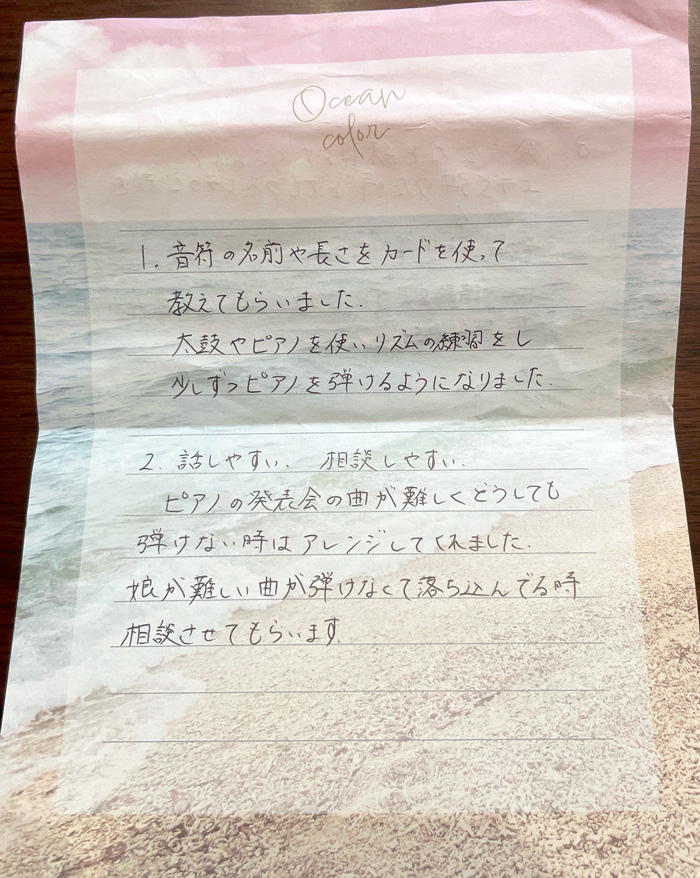 Ocean
color
1. 音符の名前や長さをカードを使って
教えてもらいました.
太鼓やピアノを使いリズムの練習をし
少しずつピアノを弾けるようになりました.
2. 話しやすい. 相談しやすい.
ピアノの発表会の曲が難しくどうしても
弾けない時はアレンジしてくれました.
娘が難しい曲が弾けなくて落ち込んでる時
相談させてもらいます.